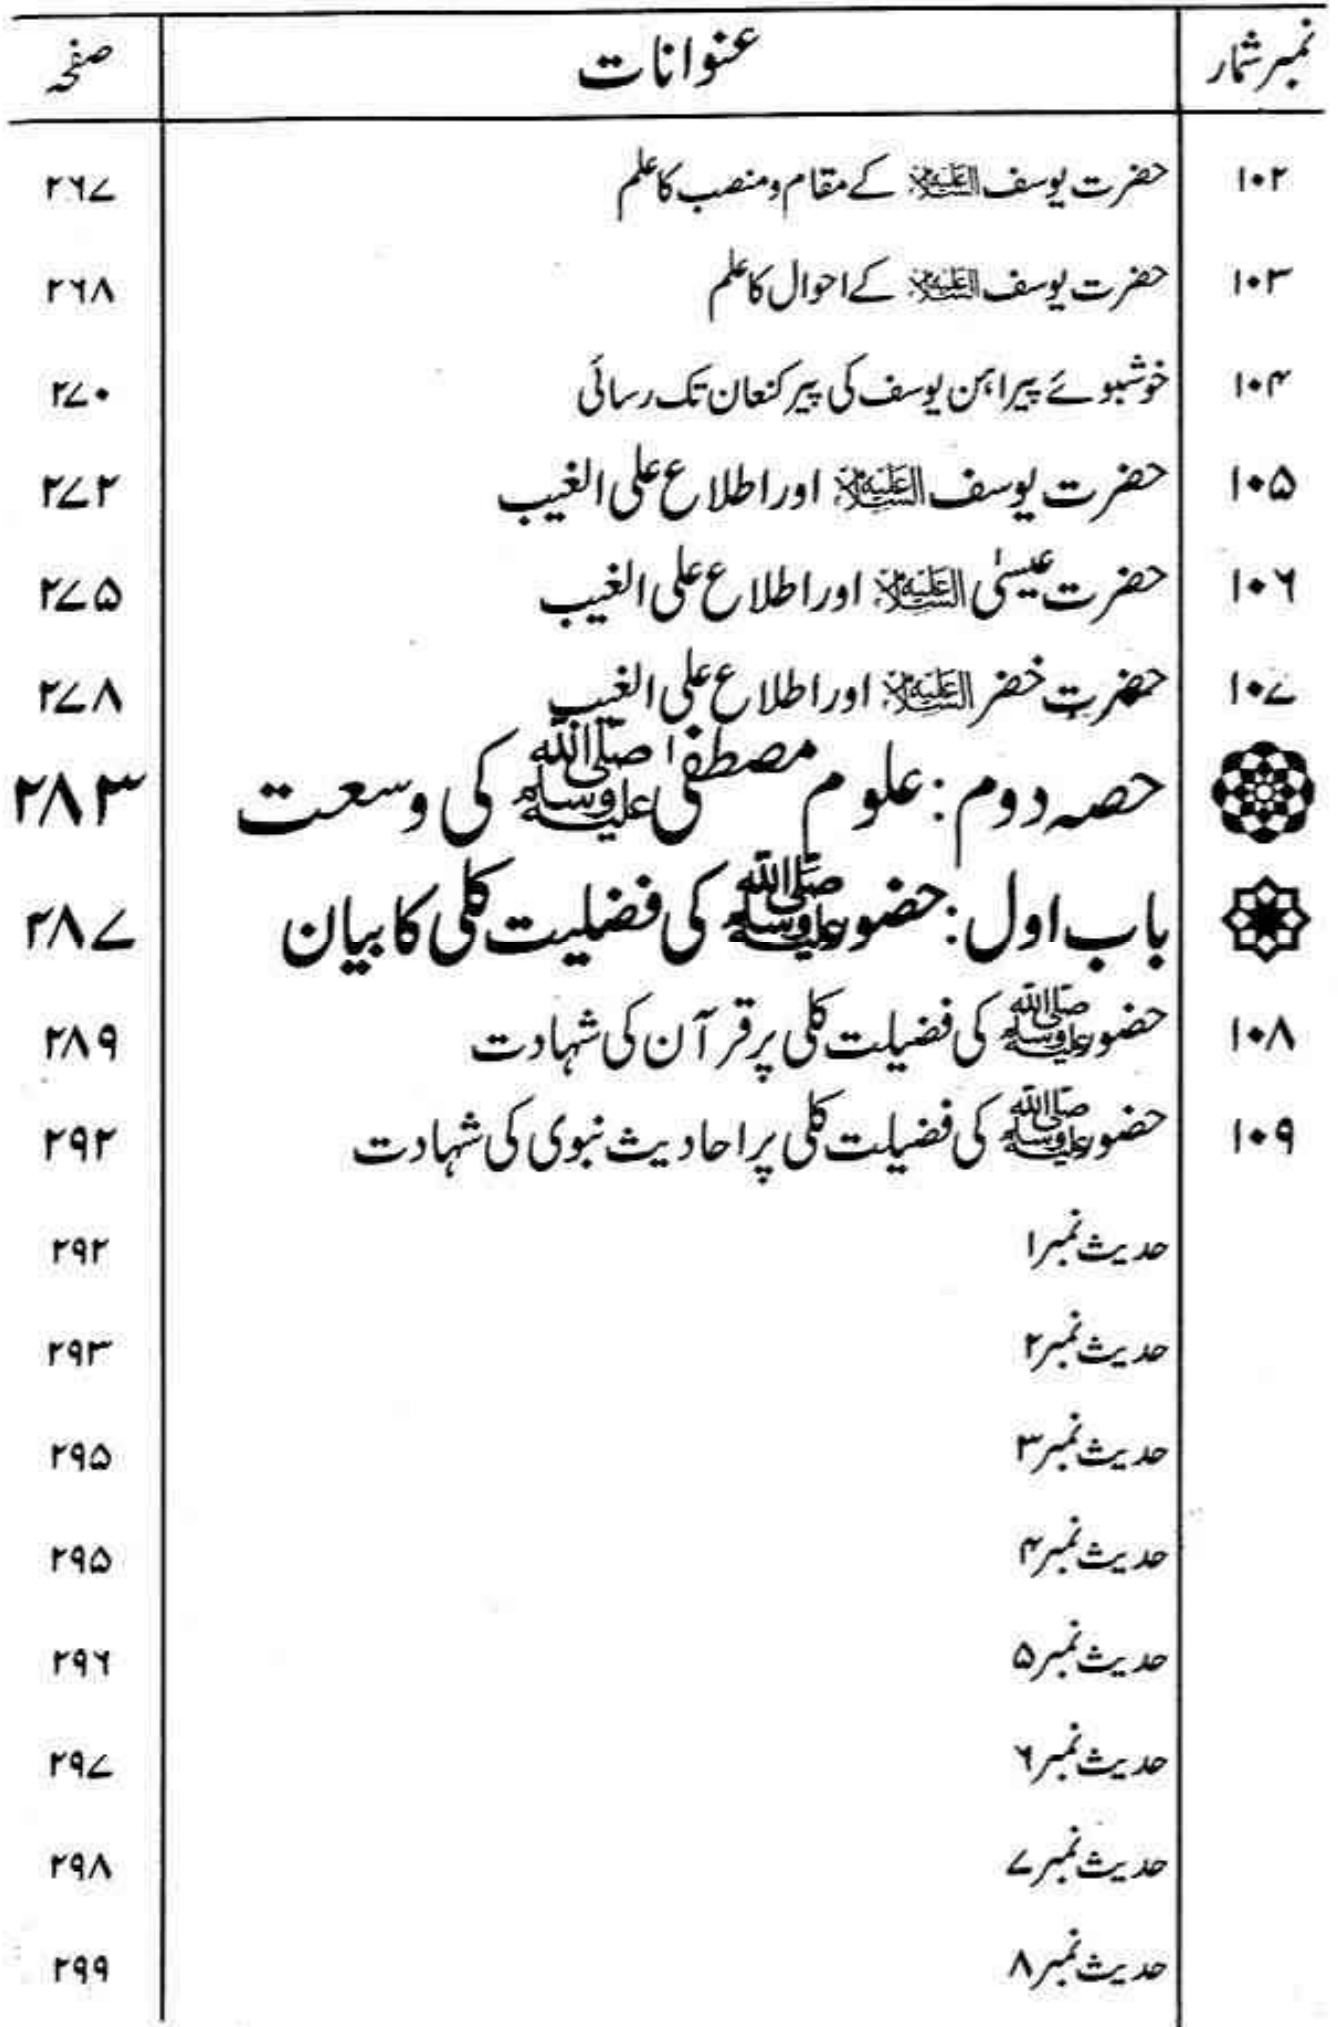 نمبر شمار عنوانات صفحہ
۱۰۲ حضرت یوسف علیہ السلام کے مقام و منصب کا علم ۲۶۷
۱۰۳ حضرت یوسف علیہ السلام کے احوال کا علم ۲۶۸
۱۰۴ خوشبوئے پیراہن یوسف کی پیر کنعان تک رسائی ۲۷۰
۱۰۵ حضرت یوسف علیہ السلام اور اطلاع علی الغیب ۲۷۲
۱۰۶ حضرت عیسیٰ علیہ السلام اور اطلاع علی الغیب ۲۷۵
۱۰۷ حضرت خضر علیہ السلام اور اطلاع علی الغیب ۲۷۸
حصہ دوم: علوم مصطفیٰ صلی اللہ علیہ وسلم کی وسعت ۲۸۳
باب اول: حضور صلی اللہ علیہ وسلم کی فضلیت کلی کا بیان ۲۸۷
۱۰۸ حضور صلی اللہ علیہ وسلم کی فضیلت کلی پر قرآن کی شہادت ۲۸۹
۱۰۹ حضور صلی اللہ علیہ وسلم کی فضیلت کلی پر احادیث نبوی کی شہادت ۲۹۲
حدیث نمبر ۱ ۲۹۲
حدیث نمبر ۲ ۲۹۳
حدیث نمبر ۳ ۲۹۵
حدیث نمبر ۴ ۲۹۵
حدیث نمبر ۵ ۲۹۶
حدیث نمبر ۶ ۲۹۷
حدیث نمبر ۷ ۲۹۸
حدیث نمبر ۸ ۲۹۹